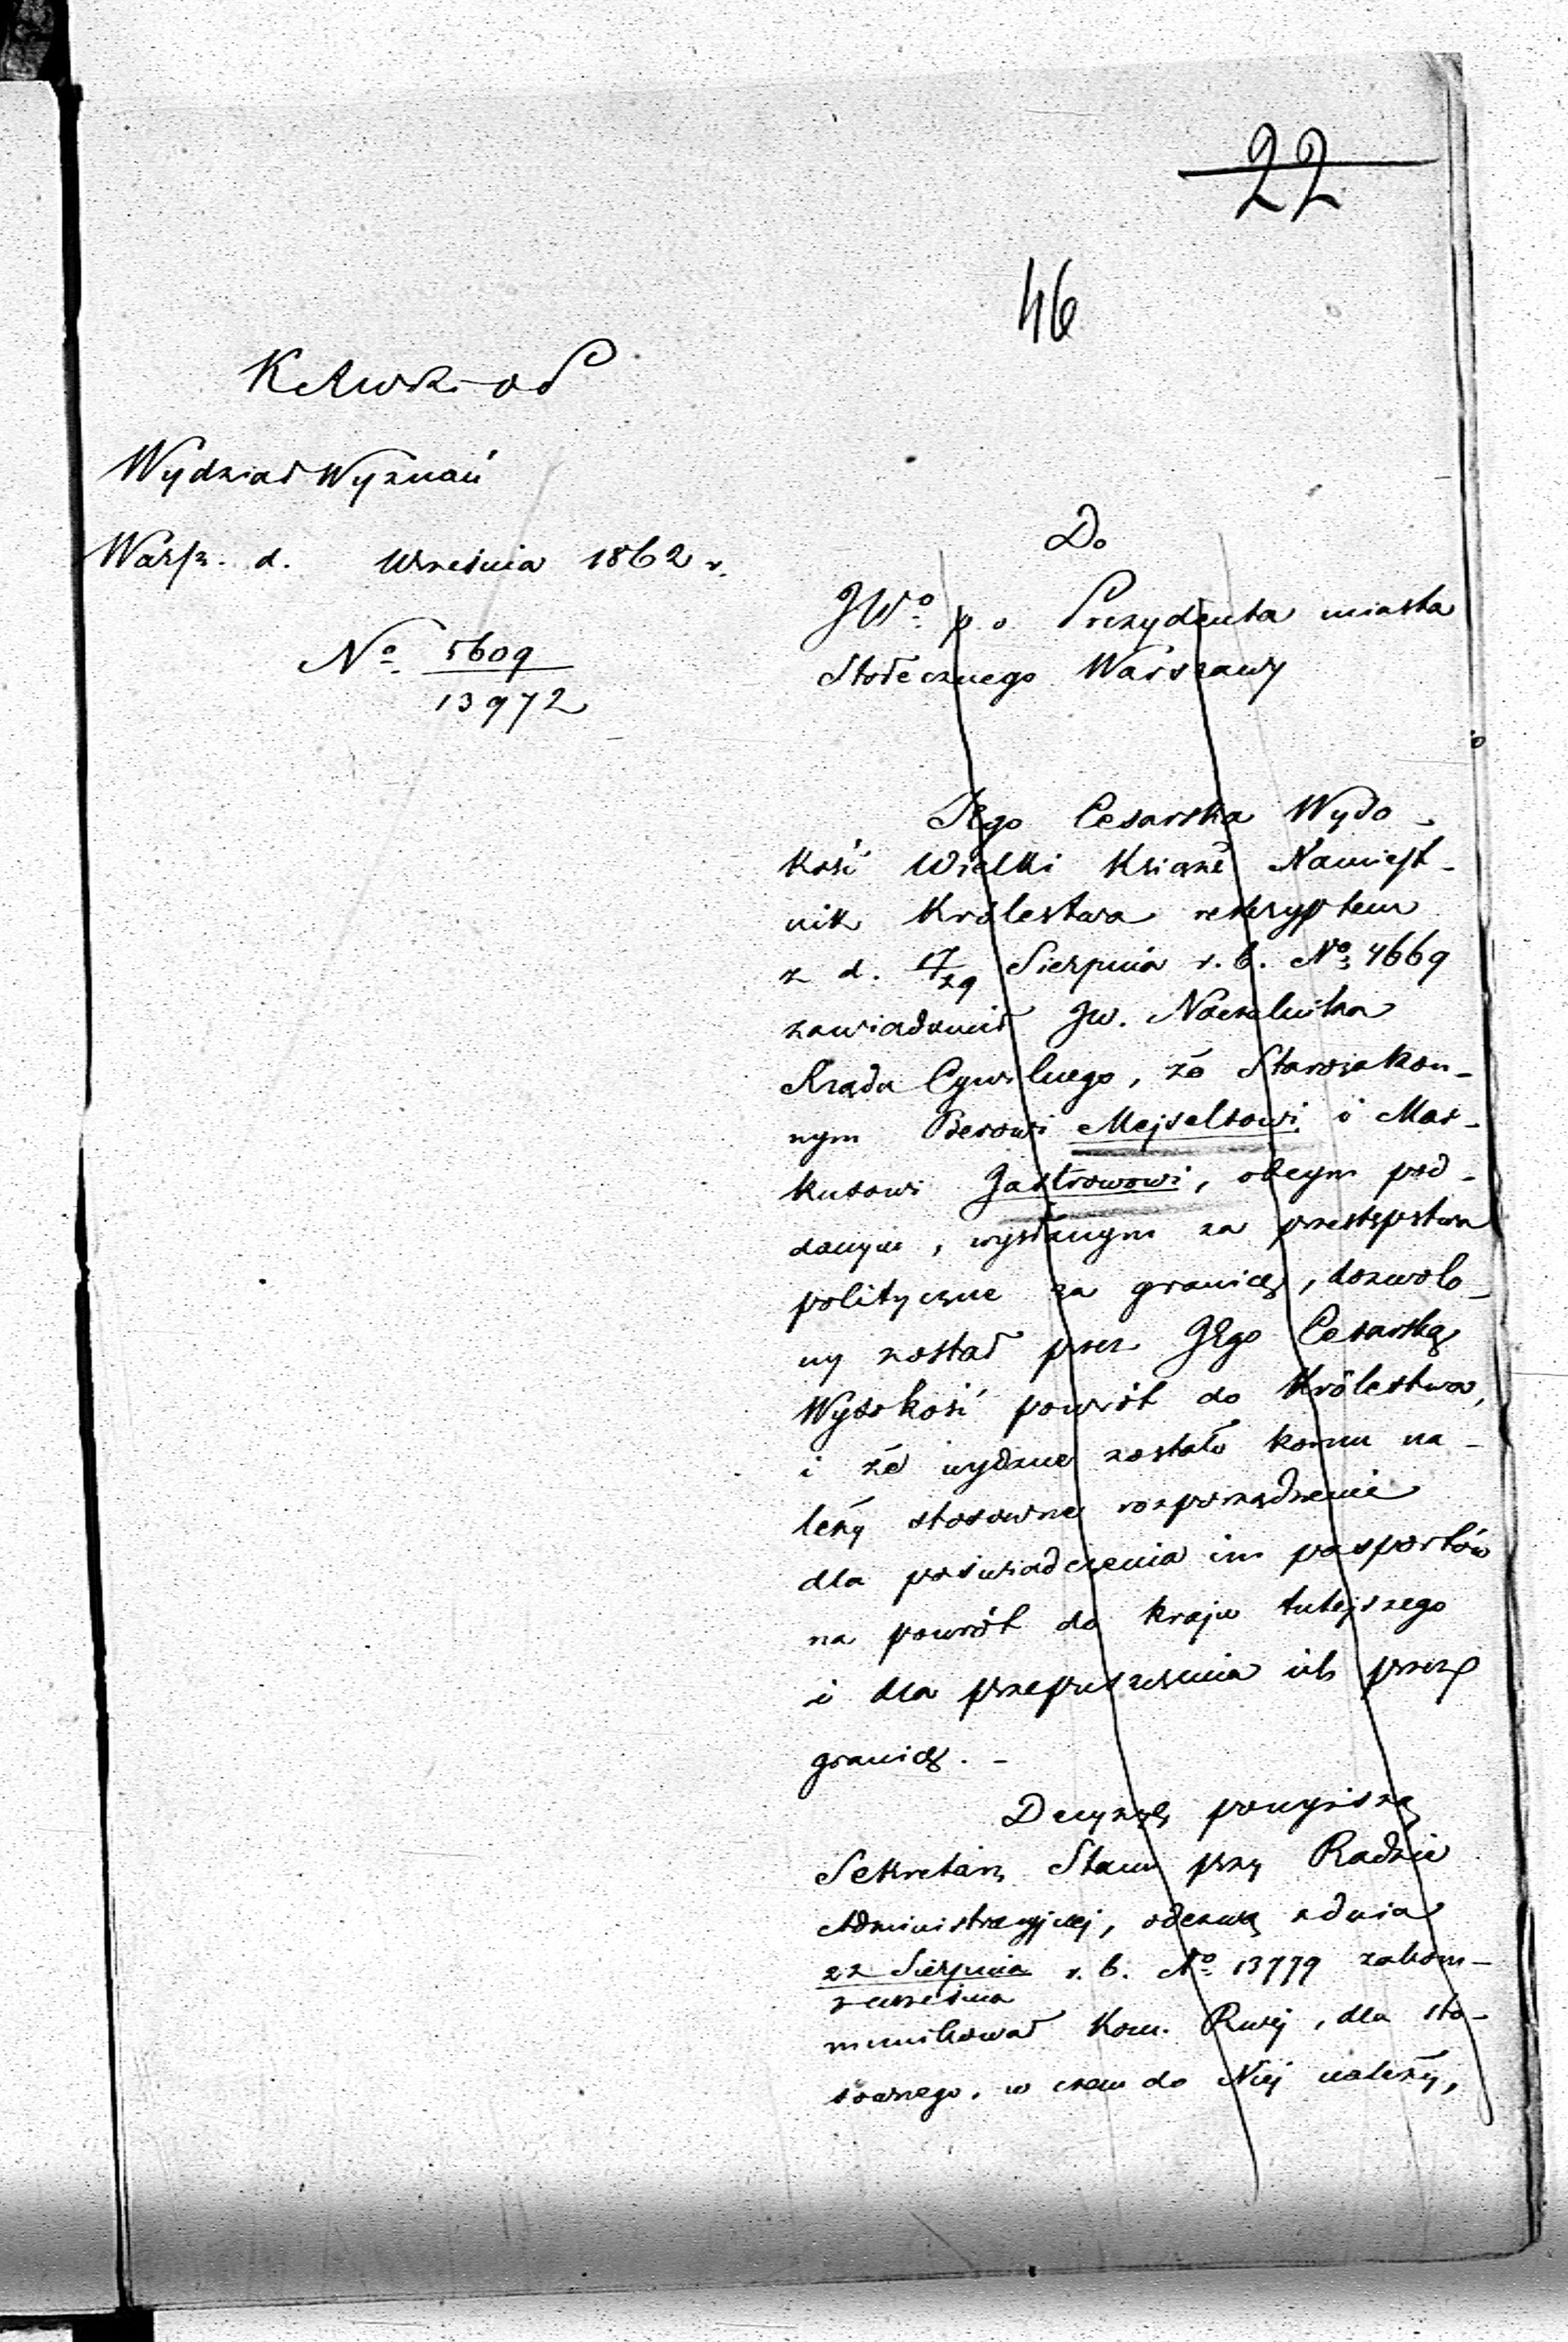 22
46
Wydział Wyznań
Warsz. d. Września 1862 r.
No 5609
13972
Do
JWo p. o. Prezydenta miasta
Stołecznego Warszawy
JEgo Cesarska Wyso-
kość Wielki Książe Namiest-
nik Królestwa reskryptem
z d. 17/29 Sierpnia r. b. No 4669
zawiadomił JW. Naczelnika
Rządu Cywilnego, że Starozakon-
nym Berowi Mejselsowi i Mar-
kusowi Jastrowowi, obcym pod-
danym, wysłanym za przestępstwa
polityczne za granicę, dozwolo-
ny został przez JEgo Cesarską
Wysokość powrót do Królestwa,
i że wydane zostało komu na-
leży stosowne rozporządzenie
dla poświadczenia im pasportów
na powrót do kraju tutejszego
i dla przepuszczenia ich przez
granicę. -
Decyzyę powyższą
Sekretarz Stanu przy Radzie
Administracyjnej, odezwą z dnia
22 Sierpnia r. b. No 13779 zakom-
3 września
munikował Kom. Rząej, dla sto-
sownego, w czem do Niej należy,